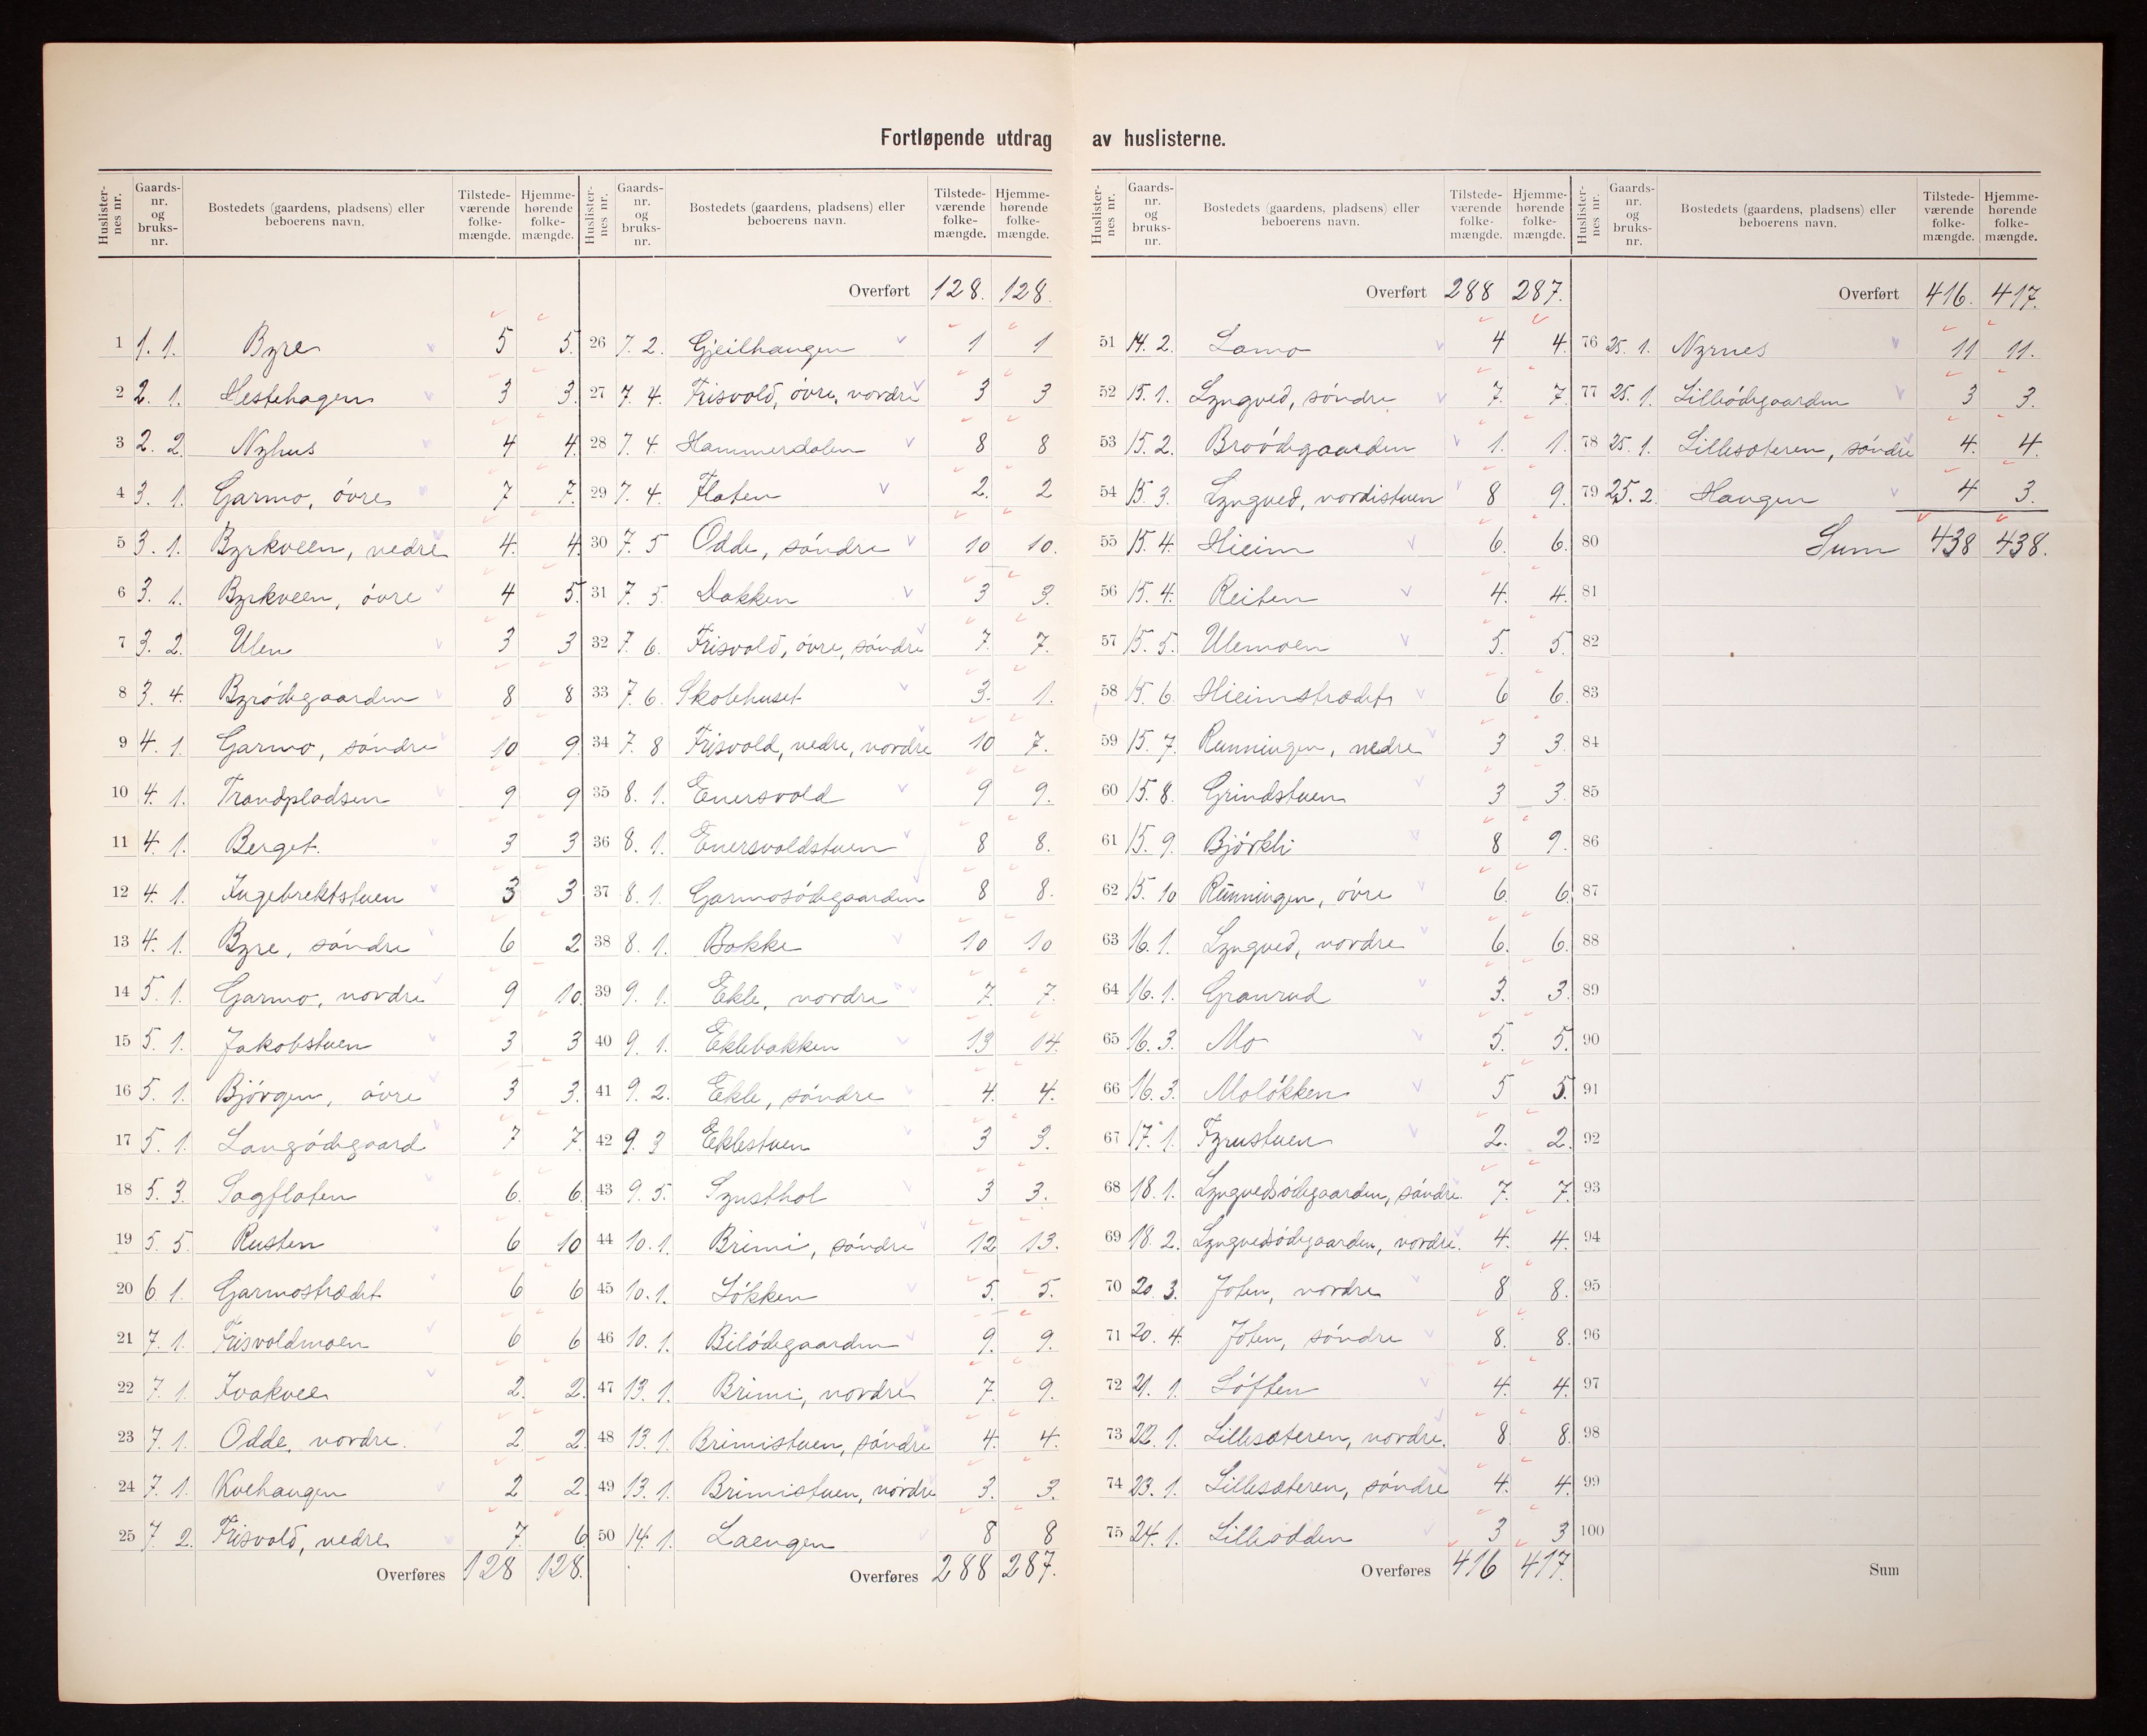 Fortløpende utdrag av huslisterne.
Huslisternes nr. Gaards-nr. og bruks-nr. Bostedets (gaardens, pladsens) eller beboerens navn. Tilstede-værende folke-mængde. Hjemme-hørende folke-mængde.
1 1. 1. Byre 5 5.
2 2. 1. Hestehagen 3 3.
3 2. 2. Nyhus 4 4.
4 3. 1. Garmo, óvre 7 7.
5 3. 1. Byrkveen, nedre 4. 4.
6 3. 1. Byrkveen, óvre 4 5.
7 3. 2. Ulen 3 3
8 3. 4. Byródegaarden 8 8
9 4. 1. Garmo, sóndre 10 9.
10 4. 1. Trondpladsen 9 9
11 4. 1. Berget. 3 3
12 4. 1. Ingebrektstuen 3 3
13 4. 1. Byre, sóndre 6 2
14 5. 1. Garmo, nordre 9 10.
15 5. 1. Jakobstuen 3 3
16 5. 1. Bjórgen, óvre 3 3.
17 5. 1. Langódegaard 7 7.
18 5. 3. Sagflaten 6. 6.
19 5. 5. Rusten 6 10
20 6. 1. Garmostrædet 6 6
21 7. 1. Frisvoldmoen 6 6
22 7. 1. Kvakvee 2. 2.
23 7. 1. Odde, nordre. 2 2.
24 7. 1. Kvehaugen 2 2.
25 7. 2. Frisvold, nedre 7. 6
Overføres 128 128.
Huslisternes nr. Gaards-nr. og bruks-nr. Bostedets (gaardens, pladsens) eller beboerens navn. Tilstede-værende folke-mængde. Hjemme-hørende folke-mængde.
Overført 128. 128.
26 7. 2. Gjeilhaugen 1 1
27 7. 4. Frisvold, óvre, nordre 3 3
28 7. 4. Hammerdalen 8 8
29 7. 4. Flaten 2. 2
30 7. 5 Odde, sóndre 10 10.
31 7. 5. Dokken 3 3.
32 7. 6. Frisvold, óvre, sóndre 7. 7.
33 7. 6. Skolehuset 3. 1.
34 7. 8 Frisvold, nedre, nordre 10 7.
35 8. 1. Enersvold 9 9.
36 8. 1. Enersvoldstuen 8 8.
37 8. 1. Garmosódegaarden 8 8.
38 8. 1. Bakke 10 10
39 9. 1. Ekle, nordre 7. 7.
40 9. 1. Eklebakken 13 14.
41 9. 2. Ekle, sóndre 4. 4.
42 9. 3 Eklestuen 3 3.
43 9. 5. Synsthol 3 3.
44 10. 1. Brimi, sóndre 12 13.
45 10. 1. Lókken 5. 5.
46 10. 1. Bilódegaarden 9. 9.
47 13. 1. Brimi, nordre 7. 9.
48 13. 1. Brimistuen, sóndre 4. 4.
49 13. 1. Brimistuen, nordre 3. 3.
50 14. 1. Laengen 8 8
Overføres 288 287.
Huslisternes nr. Gaards-nr. og bruks-nr. Bostedets (gaardens, pladsens) eller beboerens navn. Tilstede-værende folke-mængde. Hjemme-hørende folke-mængde.
Overført 288 287.
51 14. 2. Lamo 4 4.
52 15. 1. Lyngved, sóndre 7. 7.
53 15. 2. Broódegaarden 1. 1.
54 15. 3. Lyngved, nordistuen 8 9.
55 15. 4. Hieim 6. 6.
56 15. 4. Reiten 4. 4.
57 15. 5. Ulemoen 5. 5.
58 15. 6. Hieimstrædet 6 6.
59 15. 7. Runningen, nedre 3 3.
60 15. 8. Grindstuen 3 3.
61 15. 9. Bjórkli 8 9.
62 15. 10 Runningen, óvre 6. 6
63 16. 1. Lyngved, nordre 6. 6.
64 16. 1. Granrud 3. 3.
65 16. 3. Mo 5. 5.
66 16. 3. Molókken 5 5.
67 17. 1. Fyrustuen 2. 2.
68 18. 1. Lyngvedsódegaarden, sóndre. 7. 7.
69 18. 2. Lyngvedsódegaarden, nordre. 4. 4.
70 20. 3. Joten, nordre 8 8.
71 20. 4. Joten, sóndre 8. 8.
72 21. 1. Lóften 4. 4.
73 22. 1. Lillesæteren, nordre. 8 8.
74 23. 1. Lillesæteren, sóndre 4. 4.
75 24. 1. Lilleodden 3 3
Overføres 416 417.
Huslisternes nr. Gaards-nr. og bruks-nr. Bostedets (gaardens, pladsens) eller beboerens navn. Tilstede-værende folke-mængde. Hjemme-hørende folke-mængde.
Overført 416. 417.
76 25. 1. Nyrnes 11 11.
77 25. 1. Lilleódegaarden 3 3.
78 25. 1. Lillesæteren, sóndre 4. 4.
79 25. 2. Haugen 4 3.
80 Sum 438 438.
81
82
83
84
85
86
87
88
89
90
91
92
93
94
95
96
97
98
99
100
Sum